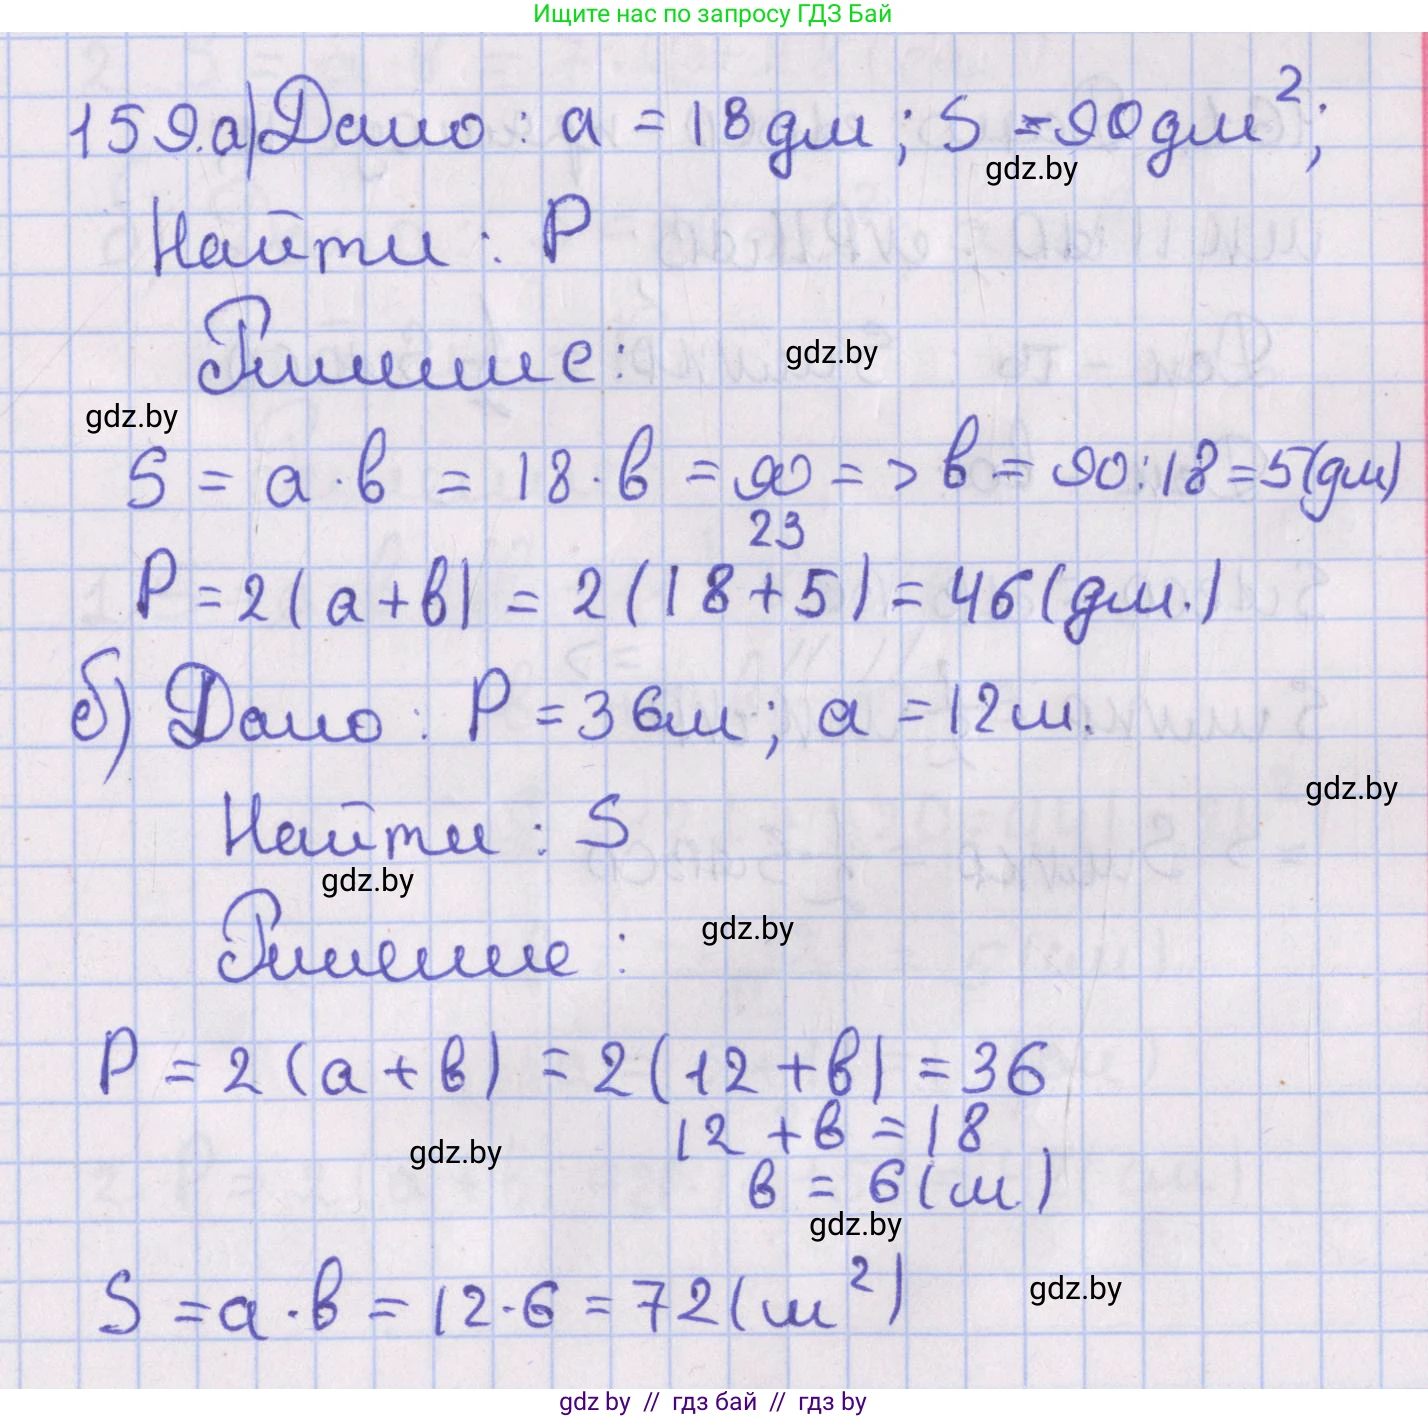 Ищите нас по запросу ГДЗ Бай
159.а) Дано: a = 18 дм; S = 90 дм²;
gdz.by
Найти: P
Решение:
gdz.by
gdz.by
S = a · в = 18 · в = 90 => в = 90:18 = 5(дм)
23
P = 2(a+в) = 2(18+5) = 46(дм.)
б) Дано: P = 36м; a = 12м.
gdz.by
Найти: S
gdz.by
Решение:
gdz.by
P = 2(a+в) = 2(12+в) = 36
12 + в = 18
gdz.by
в = 6(м)
gdz.by
S = a · в = 12 · 6 = 72(м²)
gdz.by
gdz.by // гдз бай // гдз by